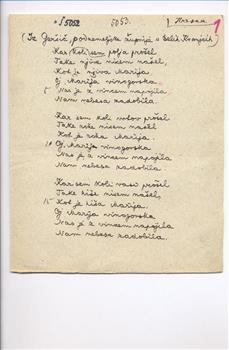 S 5052
5053.
Pravca
1
(Iz Gorič, podzemeljske župnije v Belih Kranjcih
Kar koli sem polja prošel
Take njive nisem našel,
Kot je njiva Marija.
Oj Marija vinogorska
5 Nas je z vincem napojila
Nam nebesa zadobila.
Kar sem koli rožov prošel
Take rože nisem našel
Kot je roža Marija.
10 Oj Marija vinogorska
Nas je z vincem napojila
Nam nebesa zadobila.
Kar sem koli vasi prošel
Take hiše nisem našel,
15 Kot je hiša Marija.
Oj Marija vinogorska
Nas je z vincem napojila
Nam nebesa zadobila.